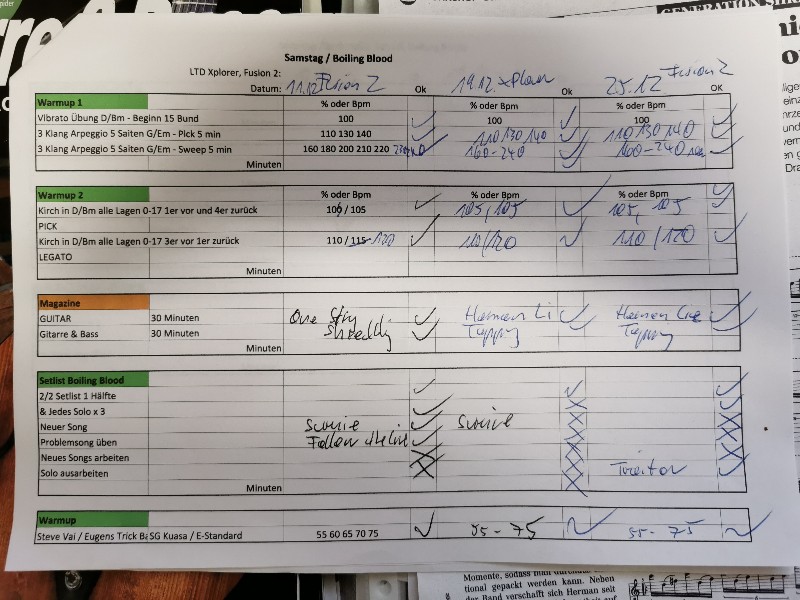 GENERATION SHR
Samstag / Boiling Blood
LTD Xplorer, Fusion 2: Fusion 2 Fusion 2
Datum: 11.12 Ok 19.12. xPlorer Ok 25.12 OK
Warmup 1 % oder Bpm % oder Bpm % oder Bpm
Vibrato Übung D/Bm - Beginn 15 Bund 100 100 100
3 Klang Arpeggio 5 Saiten G/Em - Pick 5 min 110 130 140 110/130 140 110/130 140
3 Klang Arpeggio 5 Saiten G/Em - Sweep 5 min 160 180 200 210 220 160-240 160-240
Minuten
Warmup 2 % oder Bpm % oder Bpm % oder Bpm
Kirch in D/Bm alle Lagen 0-17 1er vor und 4er zurück 100 / 105 105, 105 105, 105
PICK
Kirch in D/Bm alle Lagen 0-17 3er vor 1er zurück 110 / 115 120 110/120 110/120
LEGATO
Minuten
Magazine
GUITAR 30 Minuten One
Gitarre & Bass 30 Minuten
Minuten
Setlist Boiling Blood
2/2 Setlist 1 Hälfte
& Jedes Solo x 3
Neuer Song
Problemsong üben Follow
Neues Songs arbeiten
Solo ausarbeiten Traitor
Minuten
Warmup
Steve Vai / Eugens Trick Ba SG Kuasa / E-Standard 55 60 65 70 75 55-75 55-75
Momente, sodass
tional gepackt werden kann. Neben
der Band verschafft sich Herman seit